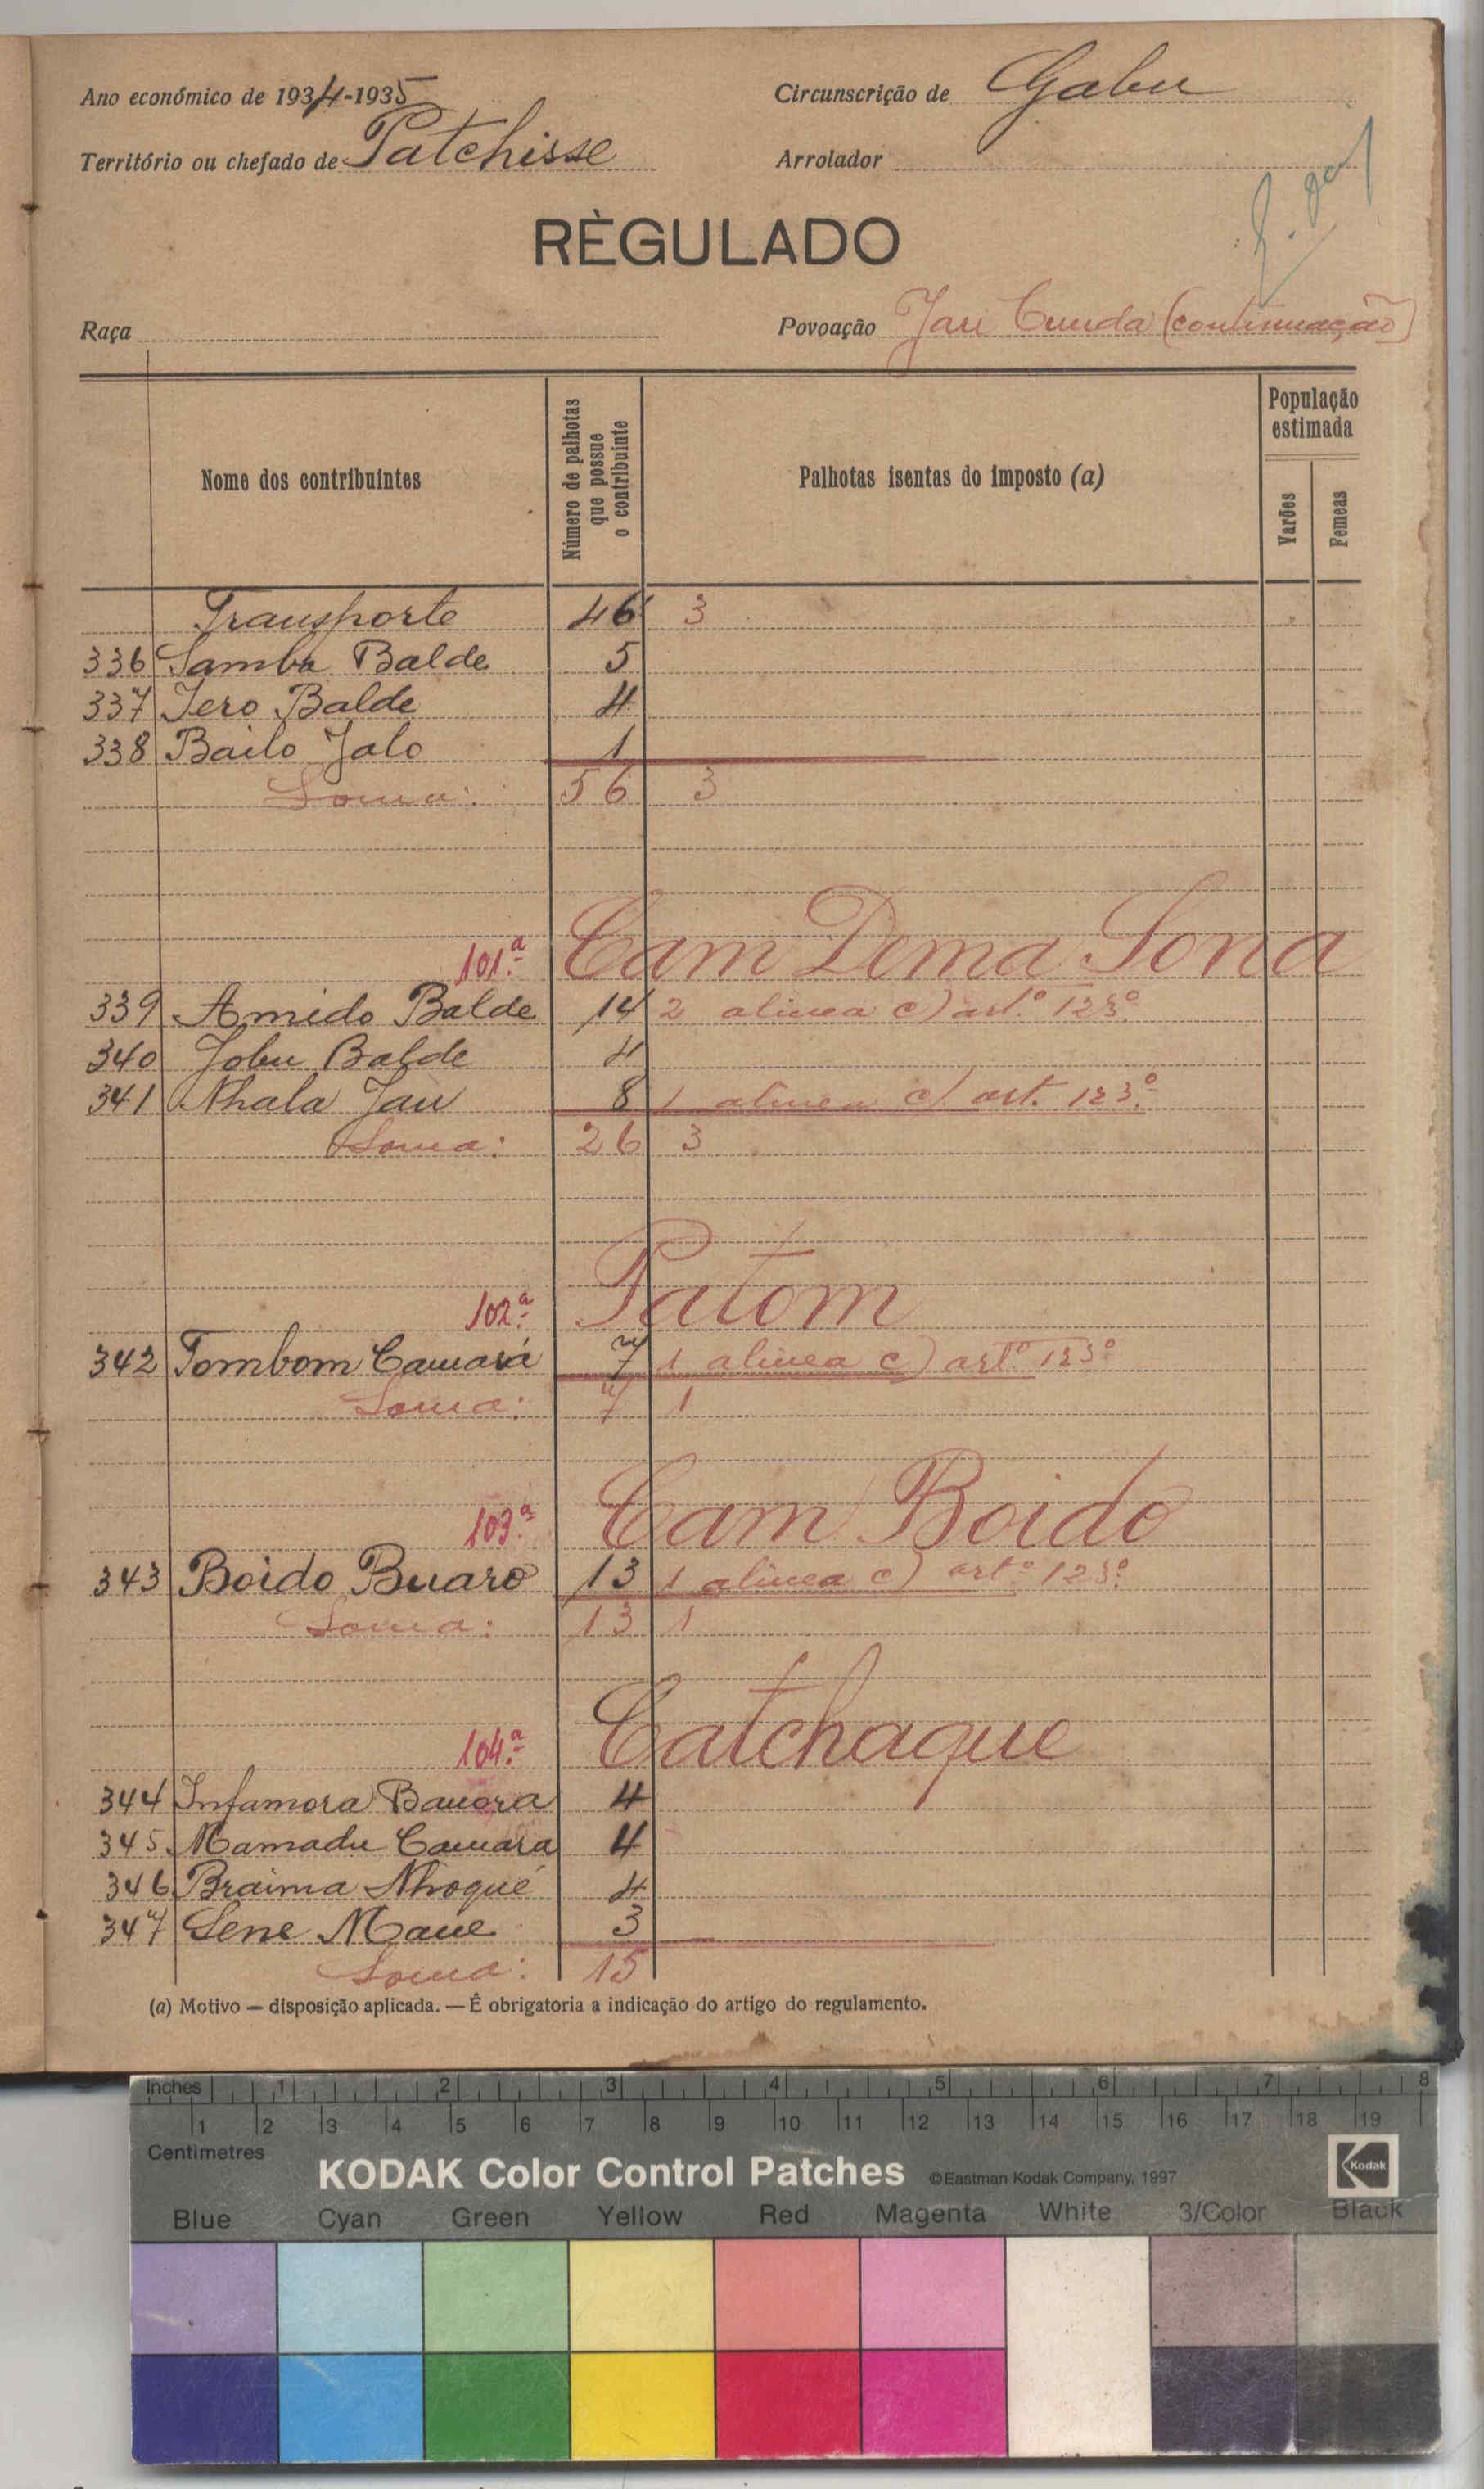 Ano económico de 1934-1935 Circunscrição de Gabu
Território ou chefado de Patchisse Arrolador
RÈGULADO
Raça Povoação Jau Cunda (continuação)
Nome dos contribuintes
Número de palhotas que possue o contribuinte
Palhotas isentas do imposto (a)
População estimada
Varões
Femeas
Transporte 46 3
336 Samba Balde 5
337 Jero Balde 4
338 Bailo Jalo 1
Soma: 56 3
101.ª Cam Dema Sona
339 Amido Balde 14 2 alinea c) art.º 123º
340 Jobu Balde 4
341 Nhala Jau 8 1 alinea c) art. 123.º
Soma: 26 3
102.ª Patom
342 Tombom Camará 7 1 alinea c) artº 123º
Soma: 7 1
103.ª Cam Boido
343 Boido Buaro 13 1 alinea c) artº 123º
Soma: 13 1
104.ª Catchaque
344 Infamora Bauora 4
345 Mamadu Camara 4
346 Braima Nhoque 4
347 Sene Mane 3
Soma: 15
(a) Motivo — disposição aplicada. — É obrigatoria a indicação do artigo do regulamento.
Inches 1 2 3 4 5 6 7 8
1 2 3 4 5 6 7 8 9 10 11 12 13 14 15 16 17 18 19
Centimetres
KODAK Color Control Patches ©Eastman Kodak Company, 1997 Kodak
Blue Cyan Green Yellow Red Magenta White 3/Color Black